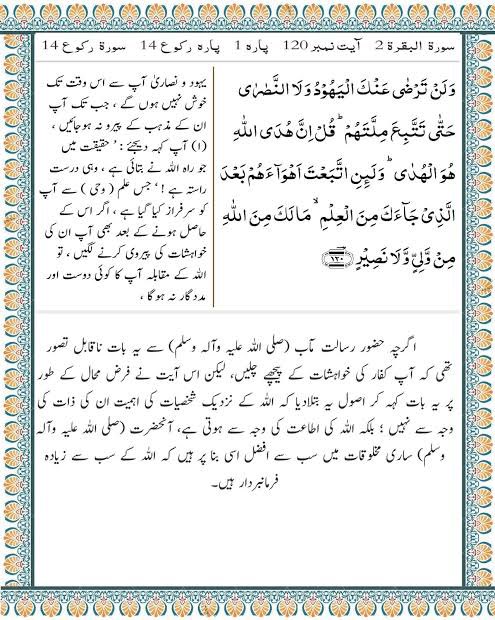 سورۃ البقرۃ 2 آیت نمبر 120 پارہ 1 پارہ رکوع 14 سورۃ رکوع 14
وَلَنْ تَرْضٰی عَنْكَ الْیَهُوْدُ وَلَا النَّصٰرٰی
حَتّٰی تَتَّبِعَ مِلَّتَهُمْ ؕ قُلْ اِنَّ هُدَی اللّٰهِ
هُوَ الْهُدٰی ؕ وَلَئِنِ اتَّبَعْتَ اَهْوَآءَهُمْ بَعْدَ
الَّذِیْ جَآءَكَ مِنَ الْعِلْمِ ۙ مَا لَكَ مِنَ اللّٰهِ
مِنْ وَّلِیٍّ وَّلَا نَصِیْرٍ ﴿۱۲۰﴾
یہود و نصاریٰ آپ سے اس وقت تک
خوش نہیں ہوں گے ، جب تک آپ
ان کے مذہب کے پیرو نہ ہوجائیں ،
(۱) آپ کہہ دیجئے : ' حقیقت میں
جو راہ اللہ نے بتائی ہے ، وہی درست
راستہ ہے !' جس علم (وحی) سے آپ
کو سرفراز کیا گیا ہے ، اگر اس کے
حاصل ہونے کے بعد بھی آپ ان کی
خواہشات کی پیروی کرنے لگیں ، تو
اللہ کے مقابلہ آپ کا کوئی دوست اور
مددگار نہ ہوگا ،
اگرچہ حضور رسالت مآب (صلی اللہ علیہ وآلہ وسلم) سے یہ بات ناقابل تصور
تھی کہ آپ کفار کی خواہشات کے پیچھے چلیں، لیکن اس آیت نے فرض محال کے طور
پر یہ بات کہہ کر اصول یہ بتلادیا کہ اللہ کے نزدیک شخصیات کی اہمیت ان کی ذات کی
وجہ سے نہیں ؛ بلکہ اللہ کی اطاعت کی وجہ سے ہوتی ہے، آنحضرت (صلی اللہ علیہ وآلہ
وسلم) ساری مخلوقات میں سب سے افضل اسی بنا پر ہیں کہ اللہ کے سب سے زیادہ
فرمانبردار ہیں۔